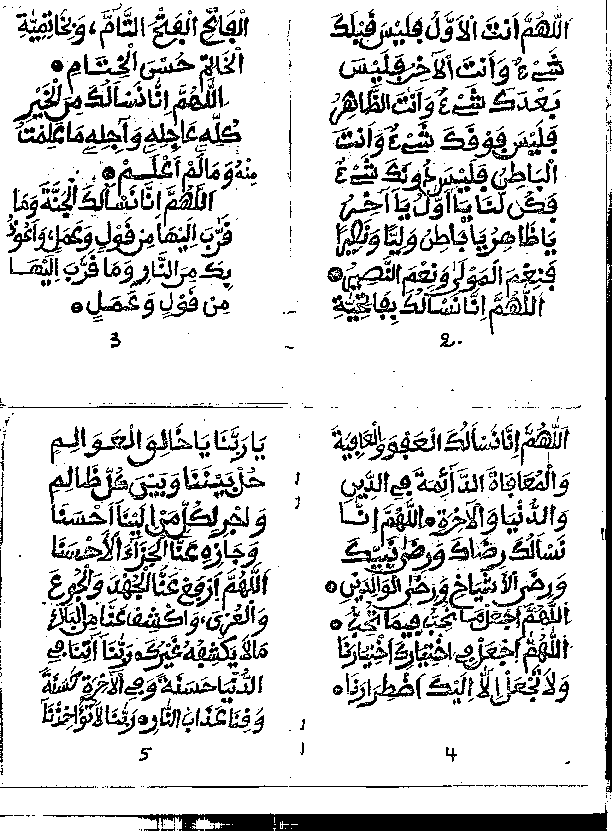 اللهم أنت الأول فليس قبلك
شيء وأنت الآخر فليس
بعدك شيء وأنت الظاهر
فليس فوقك شيء وأنت
الباطن فليس دونك شيء
فكن لنا يا أول يا آخر
يا ظاهر يا باطن وليا ونصيرا
فنعم المولى ونعم النصير
اللهم إنا نسألك بفاتحية
2
الفاتح الفتح التام، وبخاتمية
الخاتم حسن الختام
اللهم إنا نسألك من الخير
كله عاجله وآجله ما علمت
منه وما لم أعلم
اللهم إنا نسألك الجنة وما
قرب إليها من قول وعمل، وأعوذ
بك من النار وما قرب إليها
من قول وعمل
3
اللهم إنا نسألك العفو والعافية
والمعافاة الدائمة في الدين
والدنيا والآخرة، اللهم إنا
نسألك رضاك ورضى نبيك
ورضى الأشياخ ورضى الوالدين
اللهم اجعل ما تحب فيما تحب
اللهم اجعل في اختيارك اختيارنا
ولا تجعل إلا إليك اضطرارنا
4
يا ربنا يا خالق العوالم
حل بيننا وبين كل ظالم
واجز لكل من إلينا أحسنا
وجازه عنا الجزاء الأحسنا
اللهم ارفع عنا الجهد والجوع
والعرى، واكشف عنا من البلاء
مالا يكشفه غيرك ربنا آتنا في
الدنيا حسنة وفي الآخرة حسنة
وقنا عذاب النار، ربنا لا تؤاخذنا
5